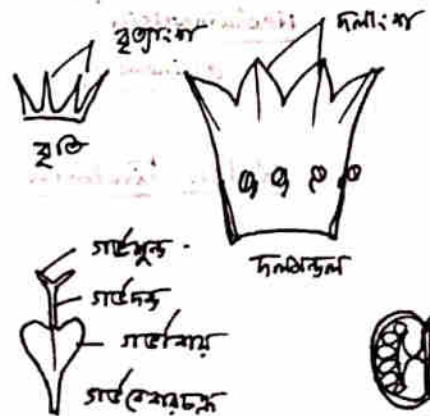 বৃত্যাংশ
দলাংশ
বৃতি
দলমন্ডল
গর্ভমুন্ড
গর্ভদন্ড
গর্ভাশয়
গর্ভকেশরচক্র